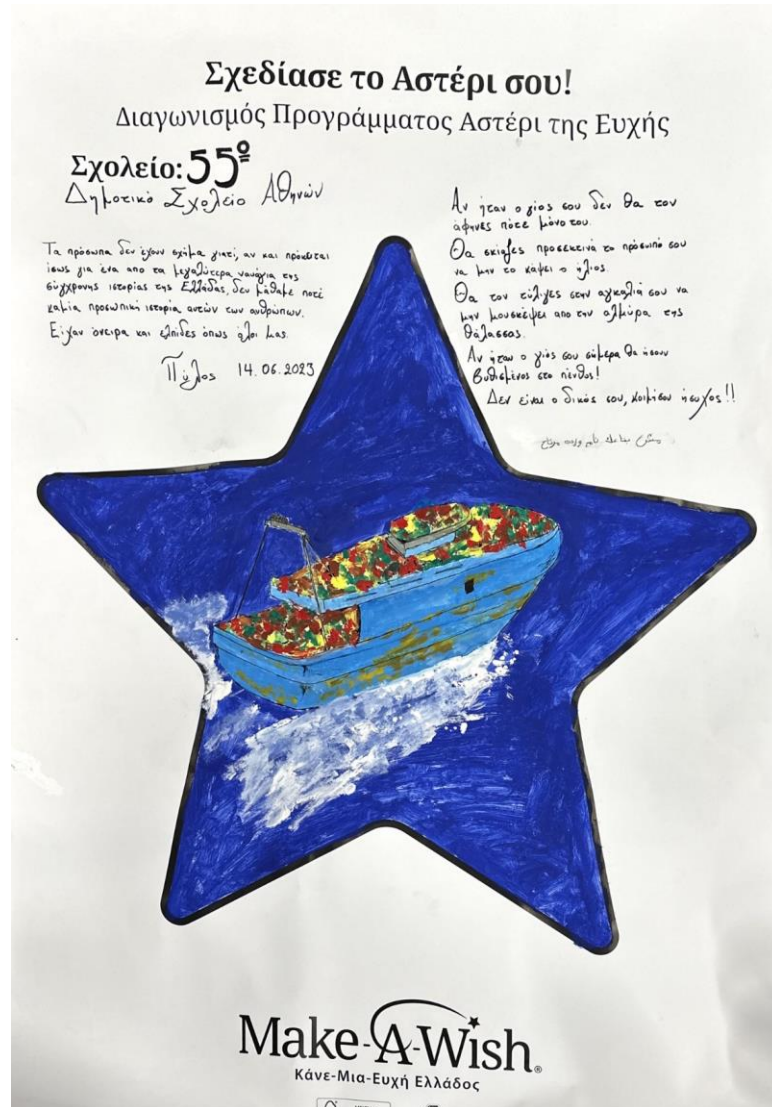 Σχεδίασε το Αστέρι σου!
Διαγωνισμός Προγράμματος Αστέρι της Ευχής
Σχολείο: 55º
Δημοτικό Σχολείο Αθηνών
Τα πρόσωπα δεν έχουν σχήμα γιατί, αν και πρόκειται
ίσως για ένα από τα μεγαλύτερα ναυάγια της
σύγχρονης ιστορίας της Ελλάδας, δεν μάθαμε ποτέ
καμία προσωπική ιστορία αυτών των ανθρώπων.
Είχαν όνειρα και ελπίδες όπως όλοι μας.
Πύλος 14.06.2023
Αν ήταν ο γιος σου δεν θα τον
άφηνες ποτέ μόνο του.
Θα σκίαζες προσεκτικά το πρόσωπό σου
να μην το κάψει ο ήλιος.
Θα τον τύλιγες στην αγκαλιά σου να
μην μουσκέψει απο την αλμύρα της
θάλασσας.
Αν ήταν ο γιός σου σήμερα θα ήσουν
βυθισμένος στο πένθος!
Δεν είναι ο δικός σου, κοιμήσου ήσυχος!!
Make-A-Wish®
Κάνε-Μια-Ευχή Ελλάδος